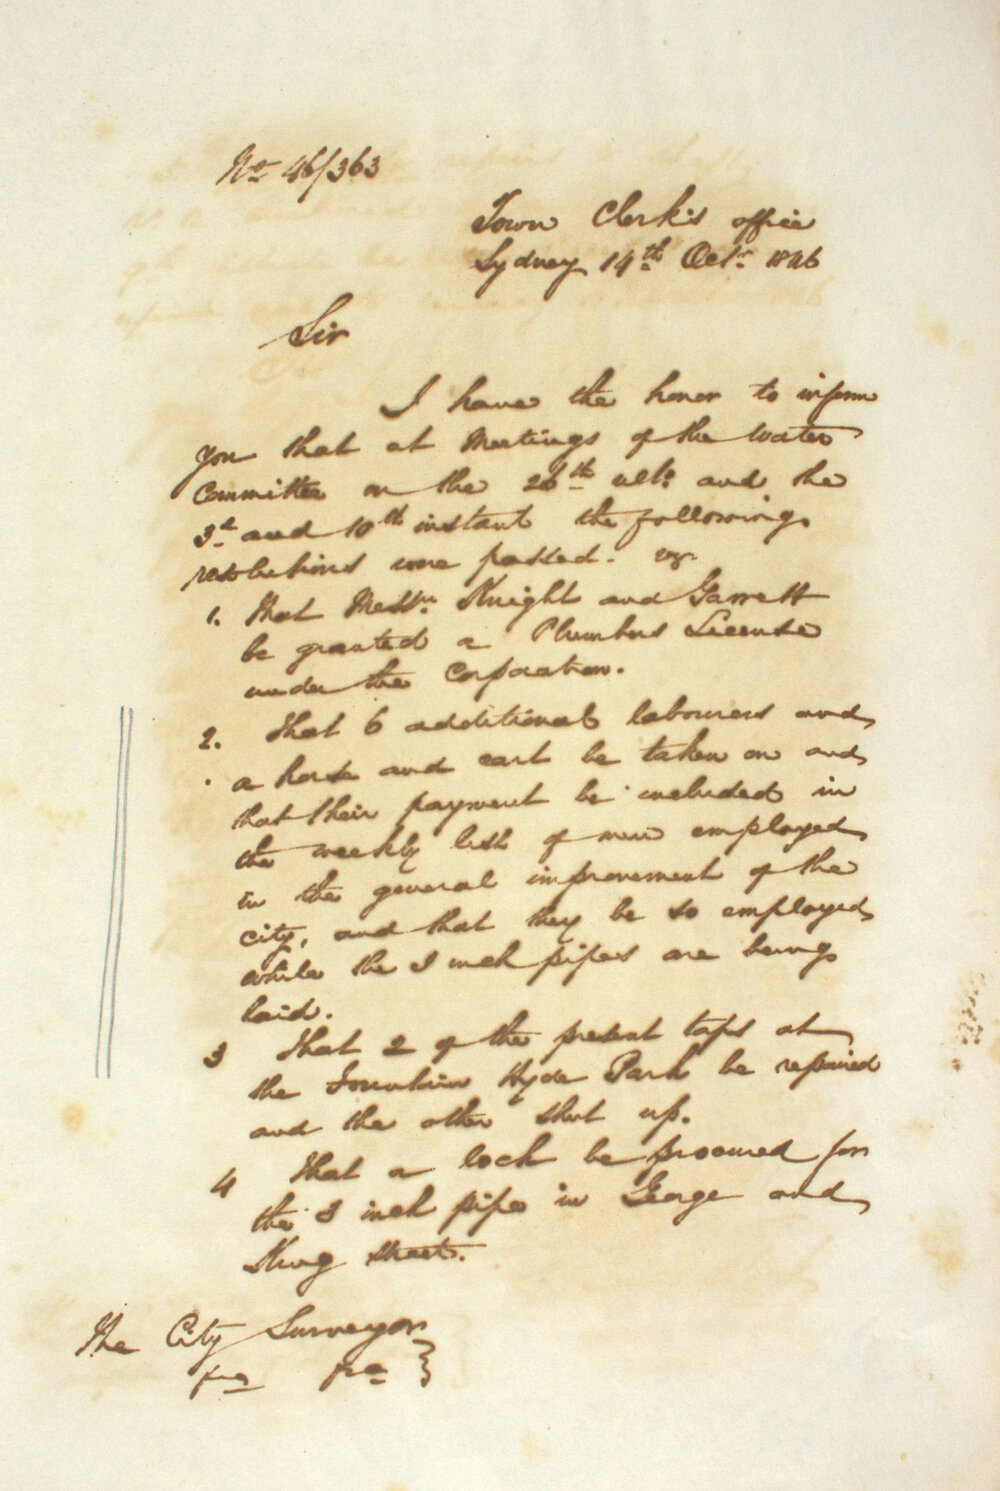 No 46/363
Town Clerk's office
Sydney 14th Octr 1846
Sir
I have the honor to inform
you that at Meetings of the Water
Committee on the 26th ulto and the
3d and 10th instant the following
resolutions were passed. viz.
1. That Messrs Knight and Garrett
be granted a Plumbers License
under the Corporation.
2. That 6 additional labourers and
a horse and cart be taken on and
that their payment be included in
the weekly list of men employed
in the general improvement of the
city, and that they be so employed
while the 3 inch pipes are being
laid.
3 That 2 of the present taps at
the Fountain Hyde Park be repaired
and the other shut up.
4 That a lock be procured for
the 3 inch pipe in George and
King Street.
The City Surveyor